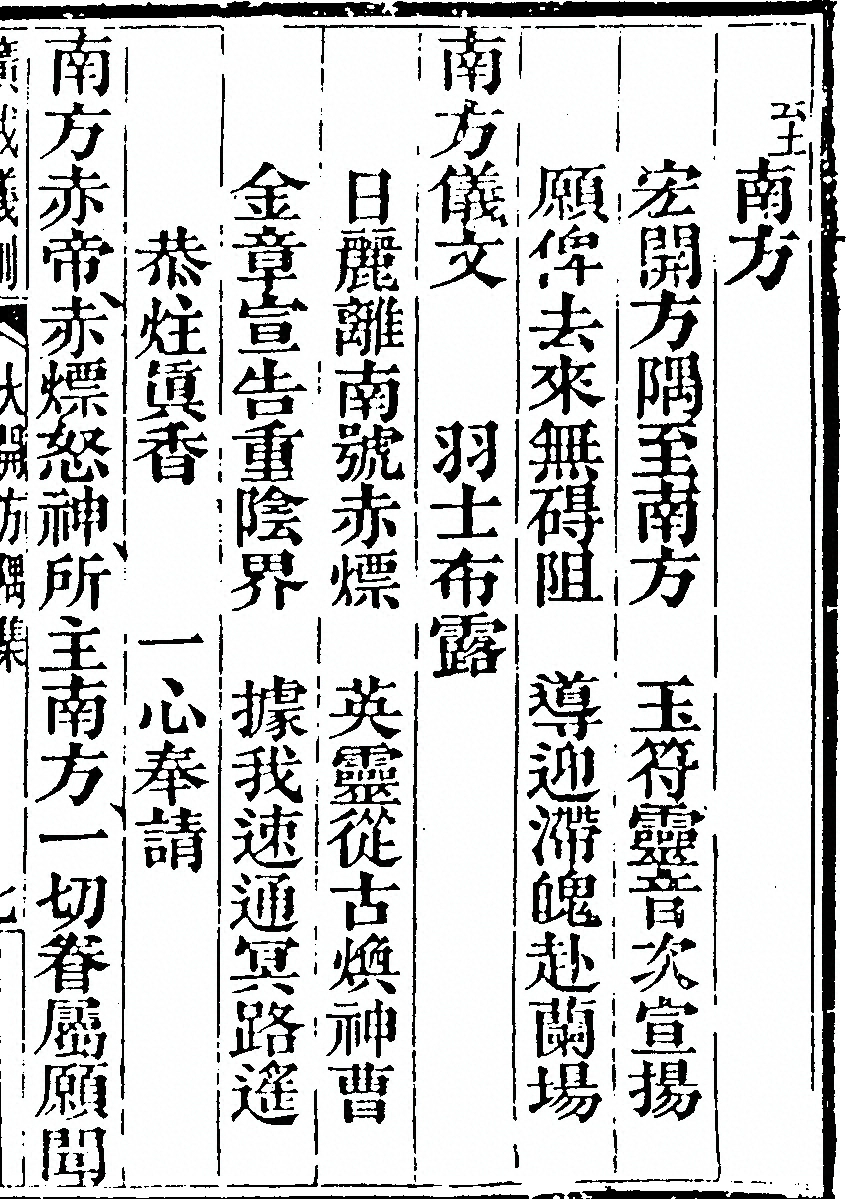 至南方
宏開方隅至南方　玉符靈音次宣揚
願俾去來無碍阻　導迎滯魄赴蘭場
南方儀文　羽士布露
日麗離南號赤熛　英靈從古煥神曹
金章宣告重陰界　據我速通冥路遙
恭炷眞香　一心奉請
南方赤帝、赤熛怒神、所主南方、一切眷屬願聞
大開方隅集